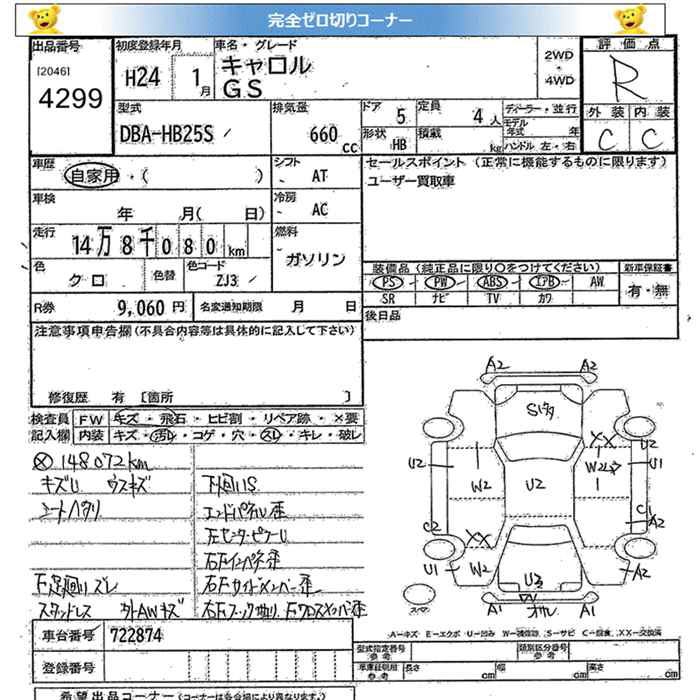 完全ゼロ切りコーナー
出品番号 初度登録年月 車名・グレード 2WD 評価点
[2046] H24 1月 キャロル ・ R
4299 GS 4WD
外装 内装
型式 排気量 ドア 5 定員 4人 ディーラー・並行 C C
DBA-HB25S 660cc 形状 HB 積載 kg モデル年式 年
ハンドル 左・右
車歴 シフト セールスポイント (正常に機能するものに限ります)
自家用・( ) AT ユーザー買取車
車検 冷房
年 月( 日) AC
走行 燃料
14万8千080km ガソリン
色 色替 色コード 装備品 (純正品に限り○をつけてください) 新車保証書
クロ ZJ3 PS PW ABS エアB AW 有・無
SR ナビ TV カワ
R券 9,060円 名変通知期限 月 日 後日品
注意事項申告欄 (不具合内容等は具体的に記入して下さい)
修復歴 有 [箇所 ]
検査員 FW キズ・飛石・ヒビ割・リペア跡・×要
記入欄 内装 キズ・汚レ・コゲ・穴・スレ・キレ・破レ
148072km
キズU ウスキズ 下回りS
シートヘタリ エンドパネル歪
左センターピラーU
右Fインパネ歪
F足廻りズレ 右Fサイドメンバー歪
スタッドレス 社外AWキズ
A2 A2
XX U2
U2 W2 U2 W2 U1
C2 C1 A2
XX
U1 W2 U2 A2
A1 A1
A-キズ E-エクボ U-凹み W-補修跡 S-サビ C-腐食 XX-交換済
車台番号 722874 型式指定番号 参考 類別区分番号 参考
登録番号 車庫証明用 参考 長さ cm 幅 cm 高さ cm
希望出品コーナー (コーナーは各会場により異なります。)